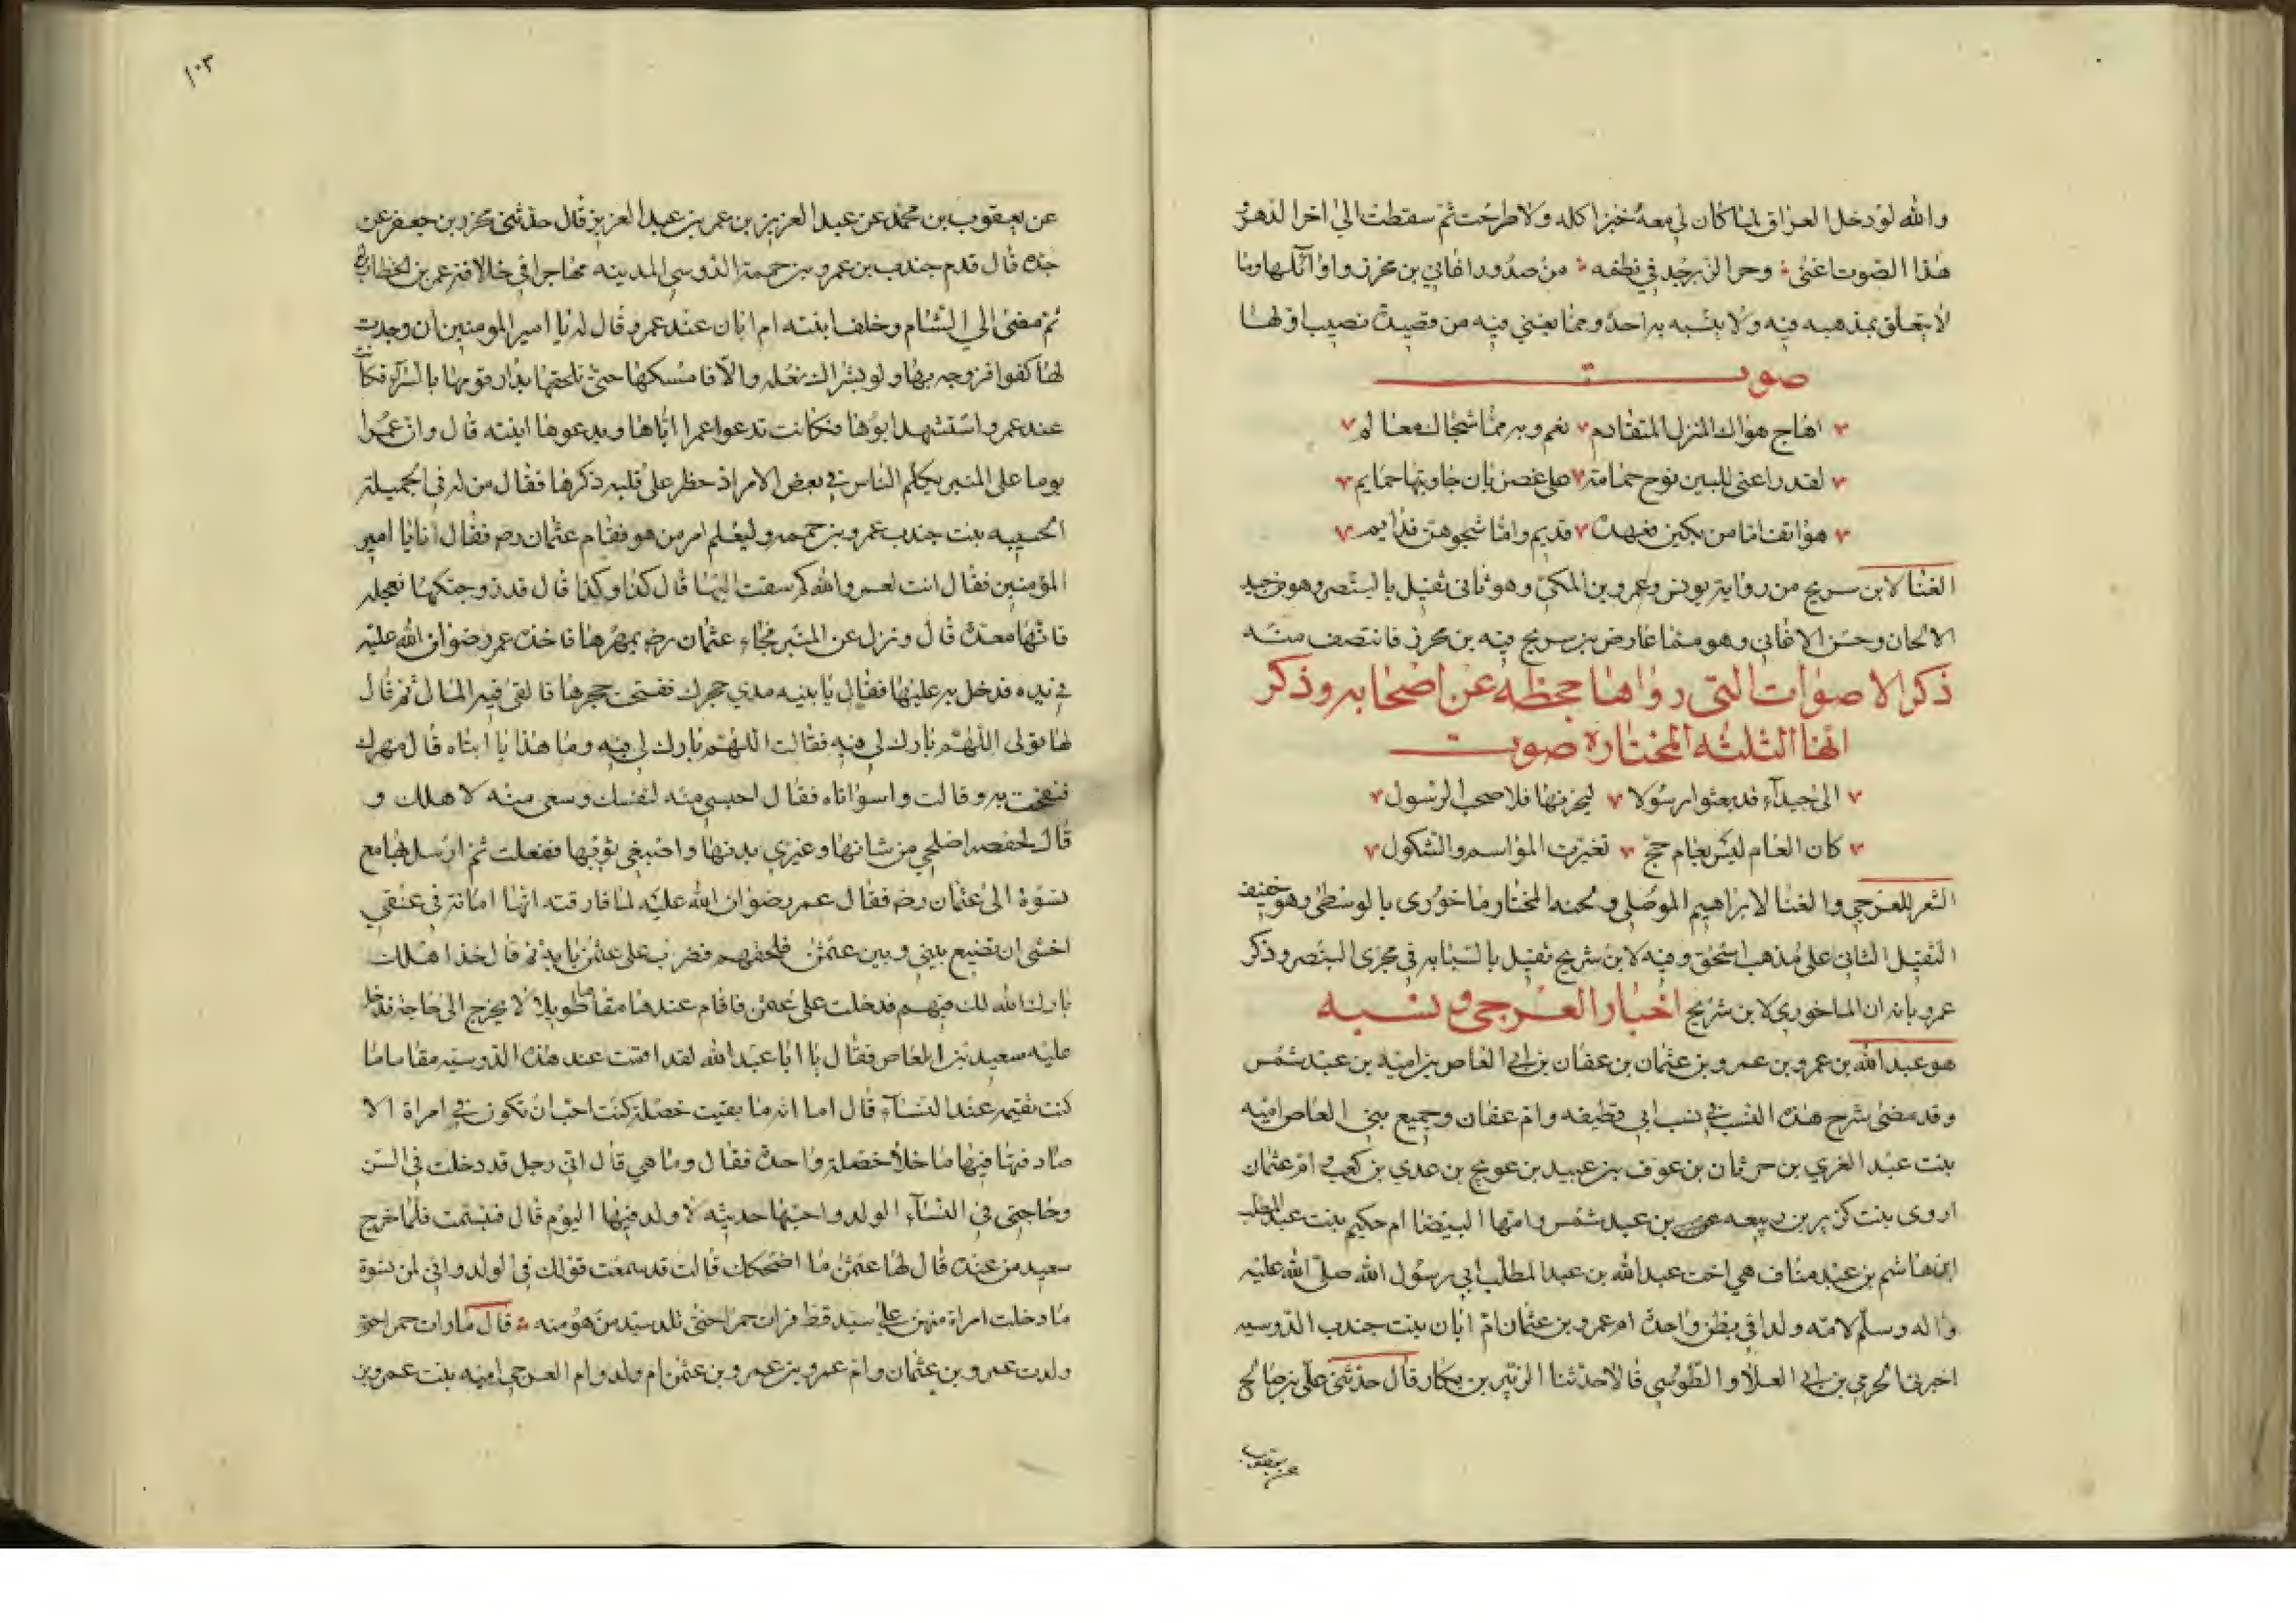 والله لو دخل العراق لما كان لي معه خبزا اكله ولا طرحت ثم سقطت الى اخر الدهر
هذا الصوت اغنى وحر الزبرجد في نظمه من صدور اغاني بن محرز واوائلها وما
لا يتعلق بمذهبه فيه ولا يشبه به احد ومما يغني فيه من قصيدة نصيب اولها
صوت
اهاج هواك المنزل المتقادم نعم وبه مما شجاك معالم
لقد راعني للبين نوح حمامة على غصن بان جاوبتها حمايم
هواتف اما من بكين فعهده قديم واما شجوهن فدايم
الغنا لابن سريج من رواية يونس وعمرو بن المكي وهو ثاني ثقيل بالبنصر وهو من جيد
الالحان وحسن الاغاني وهو مما عارض بن سريج فيه بن محرز فانتصف منه
ذكر الاصوات التي رواها جحظه عن اصحابه وذكر
انها الثلثه المختارة صوت
الى جيدآء قد بعثوا رسولا ليحزنها فلا صحب الرسول
كان العام ليس بعام حج تغيرت المواسم والشكول
الشعر للعرجي والغنا لابراهيم الموصلي ولحنه المختار ماخوري بالوسطى وهو خفيف
الثقيل الثاني على مذهب اسحق وفيه لابن شريح ثقيل بالسبابه في مجرى البنصر وذكر
عمرو بانه ان الماخوري لابن شريح اخبار العرجي ونسبه
هو عبد الله بن عمرو بن عمرو بن عثمان بن عفان بن ابي العاص بن اميه بن عبد شمس
وقد مضى شرح هذه النسب في نسب ابي قطيفه وام عفان وجميع بني العاص اميه
بنت عبد العزي بن حرثان بن عوف بن عبيد بن عويج بن عدي بن كعب وام عثمان
اروى بنت كزير بن ربيعه بن عبد شمس وامها البيضا ام حكيم بنت عبد المطلب
ابن هاشم بن عبد مناف هي اخت عبد الله بن عبد المطلب ابي رسول الله صلى الله عليه
واله وسلم لامه ولدا في بطن واحدة ام عمرو بن عثمان ام ابان بنت جندب الدوسيه
اخبرني الحرمي بن ابي العلا والطوسي قالا حدثنا الزبير بن بكار قال حدثني علي بن صالح
عن يعقوب
١٠٣
عن يعقوب بن محمد عن عبد العزيز بن عمر بن عبد العزيز قال حدثني محرز بن جعفر عن
جده قال قدم جندب بن عمرو بن حممة الدوسي المدينه مهاجرا في خلافة عمر بن الخطاب
ثم مضى الى الشام وخلف ابنته ام ابان عند عمر وقال له يا امير المومنين ان وجدت
لها كفوا فزوجه بها ولو بشراك نعله والا فامسكها حتى تلحقها بدار قومها بالسراة فكانت
عند عمر واستشهد ابوها فكانت تدعوا عمرا اباها ويدعوها ابنته قال وان عمرا
يوما على المنبر يكلم الناس في بعض الامر اذ خطر على قلبه ذكرها فقال من له في الجميلة
الحسيبه بنت جندب عمرو بن حممه وليعلم امر من هو فقام عثمان رضه فقال انا يا امير
المؤمنين فقال انت لعمر والله كم سقت اليها قال كذا وكذا قال قد زوجتكها فعجله
فانها معدة قال ونزل عن المنبر فجاء عثمان رضه بمهرها فاخذه عمر رضوان الله عليه
في يده فدخل به عليها فقال يا بنيه مدي حجرك ففتحت حجرها فالقى فيه المال ثم قال
لها قولى اللهم بارك لي فيه فقالت اللهم بارك لي فيه وما هذا يا ابتاه قال مهرك
فنفحت به وقالت واسواتاه فقال احبسي منه لنفسك وسعي منه لاهلك و
قال لحفصه اصلحي من شانها وغيري بدنها واصبغي ثوبها ففعلت ثم ارسل بها مع
نسوة الى عثمان رضه فقال عمر رضوان الله عليه لما فارقته انها امانة في عنقي
اخشى ان تضيع بيني وبين عثمن فلحقهم فضرب على عثمن بابه ثم قال خذ اهلك
بارك الله لك فيهم فدخلت على عثمن فاقام عندها مقاما طويلا لا يخرج الى حاجة فدخل
عليه سعيد بن العاص فقال يا ابا عبد الله لقد اقمت عند هذه الدوسيه مقاما ما
كنت تقيمه عند النسآء قال اما انه ما بقيت خصلة كنت احب ان تكون في امراة الا
صادفتها فيها ما خلا خصلة واحدة فقال وما هي قال اني رجل قد دخلت في السن
وحاجتي في النسآء الولد واحبها حديثه لا ولد فيها اليوم قال فتبسمت فلما خرج
سعيد من عنده قال لها عثمن ما اضحكك قالت قد سمعت قولك في الولد واني لمن نسوة
ما دخلت امراة منهن على سيد قط فرات حمرا حتى تلد سيد من هو منه قال فما رات حمرا حتى
ولدت عمرو بن عثمان وام عمرو بن عمرو بن عثمن ام ولد وام العرجي امنه بنت عمر بن